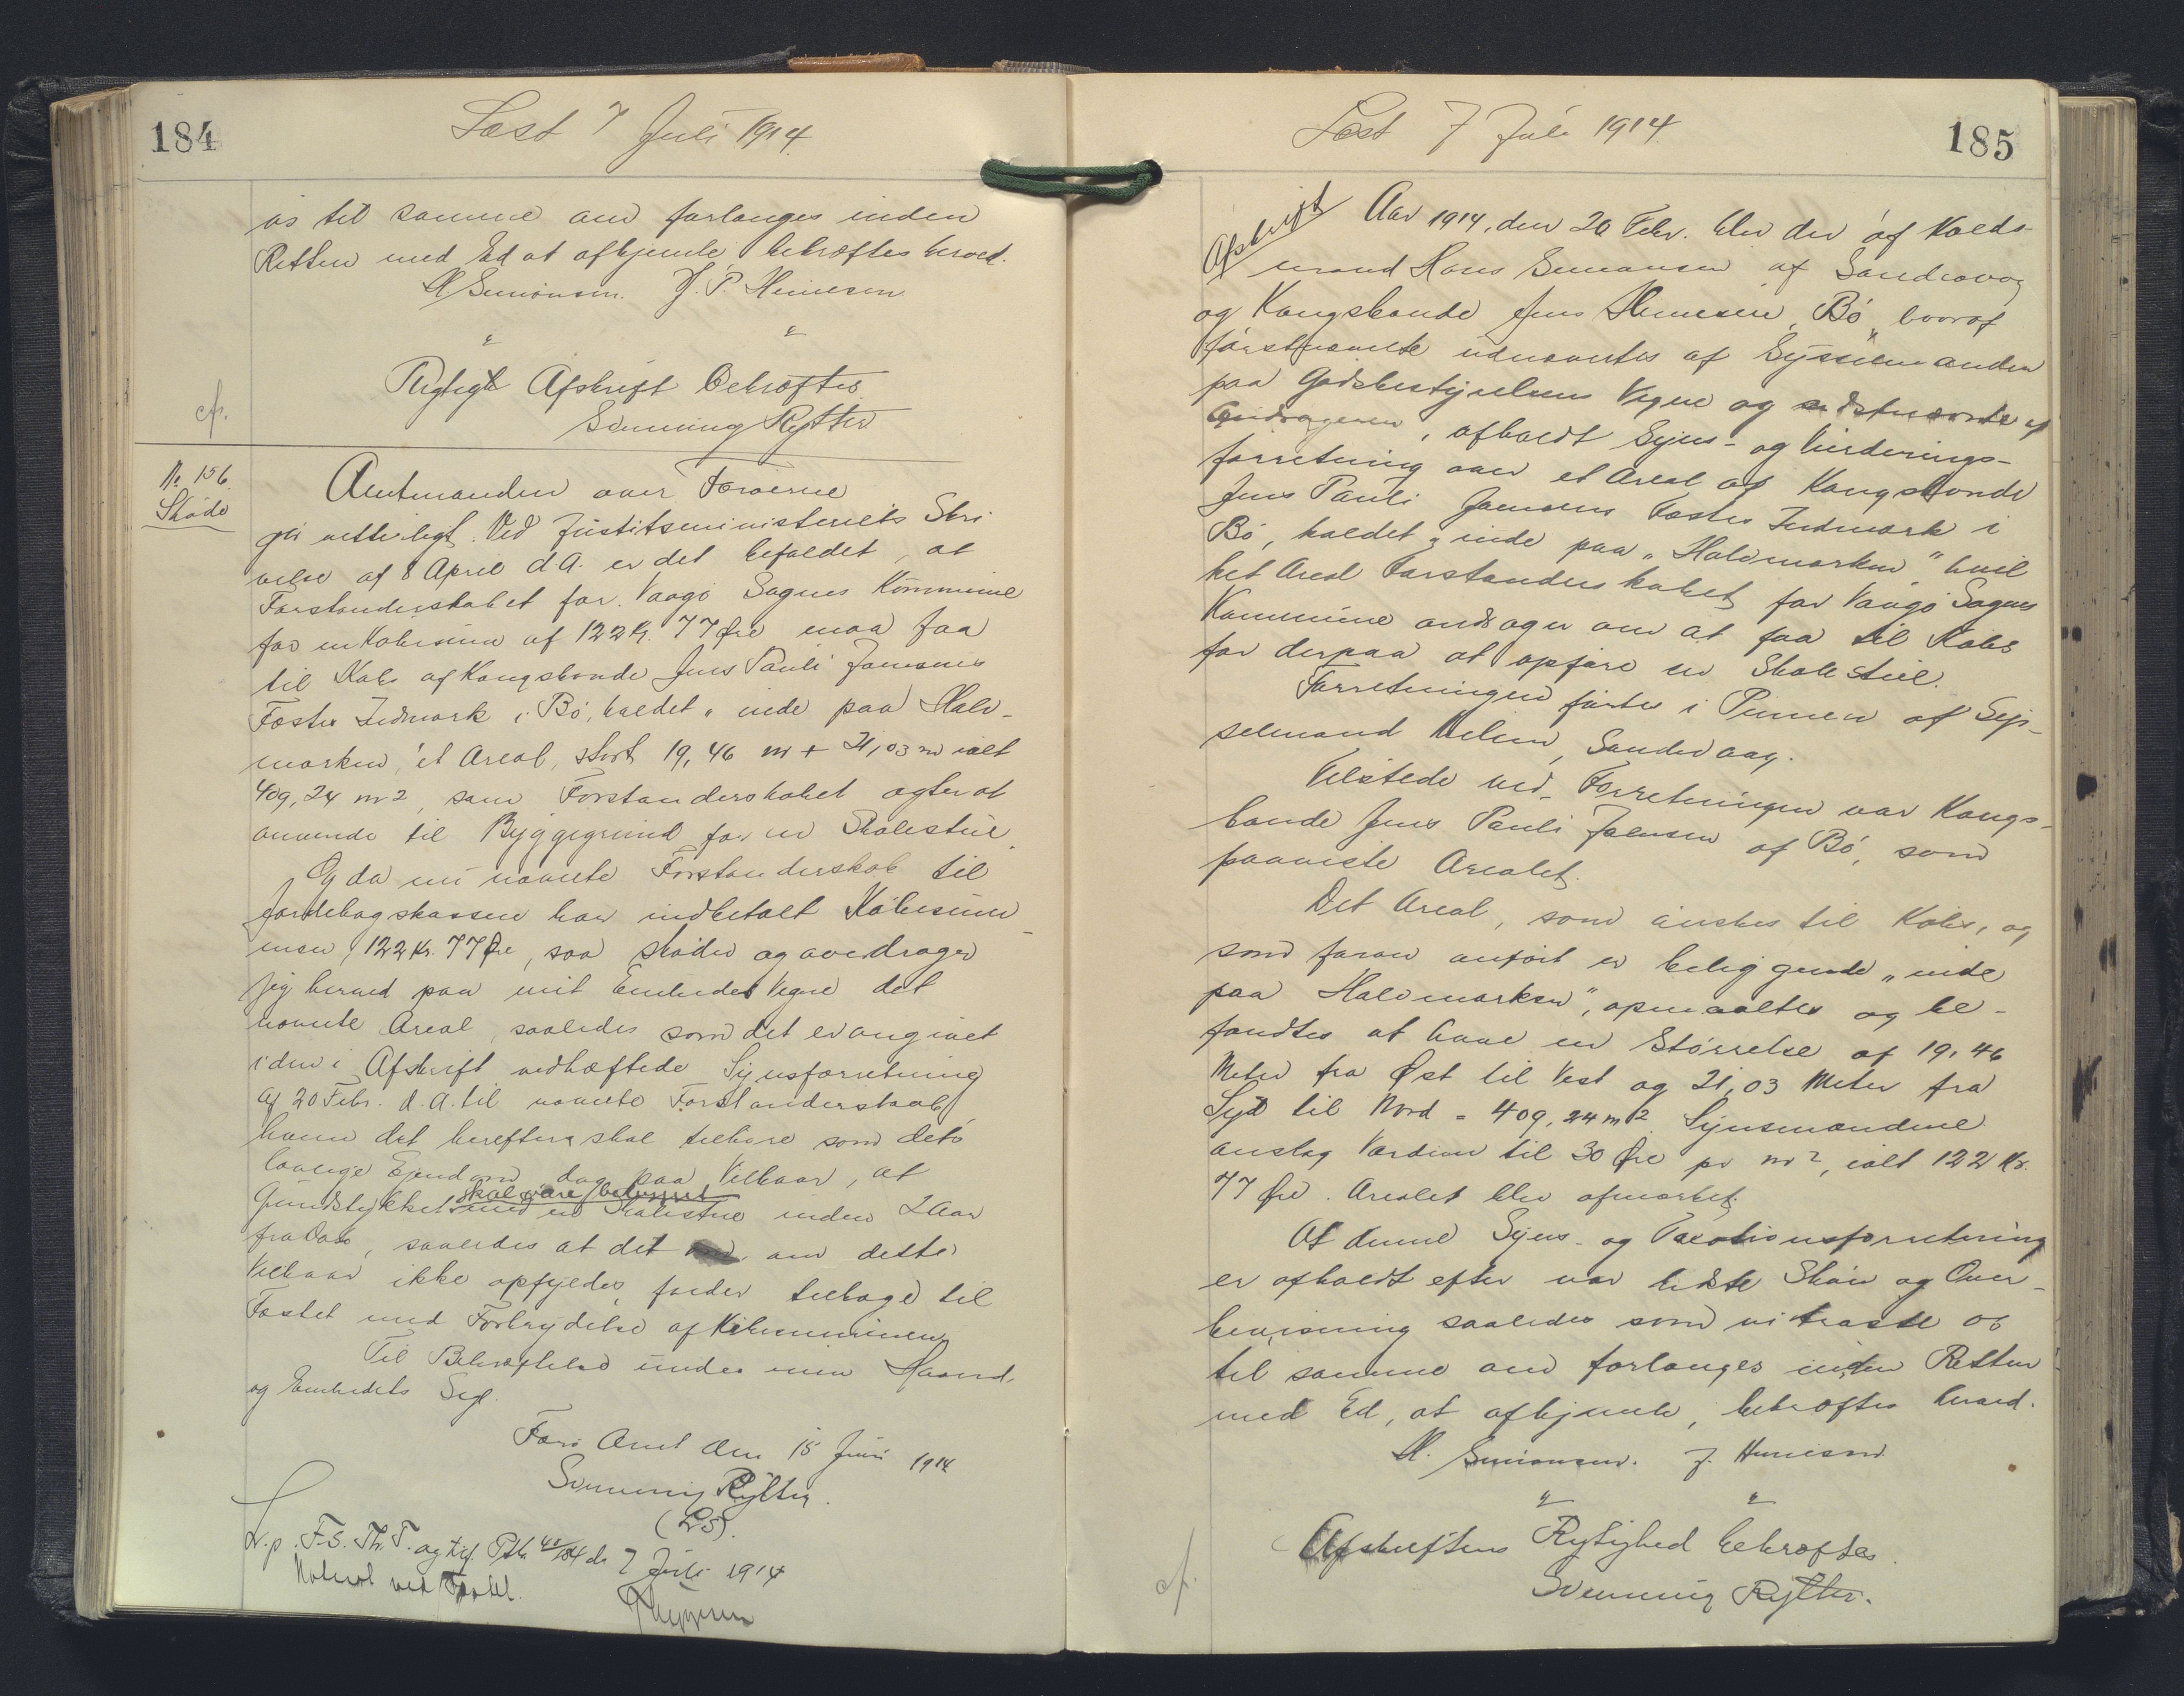 184
Læst 7 Juli 1914.
os til samme om forlanges inden
Retten med Ed at afhjemle bekræftes herved.
H Simonsen. J. P. Heinesen
" "
Rigtigt Afskrift bekræftes
Svenning Rytter
cf.
No 156.
Skøde
Amtmanden over Færøerne
gør vitterligt: Ved Justitsministeriets Skri
velse af 8 April d.A. er det befaldet, at
Forstanderskabet for Vaagø Sogns Kommune
for en Købesum af 122 Kr. 77 Øre maa faa
til Købs af Kongsbonde Jens Pauli Joensens
Fæster Indmark i Bø, kaldet „inde paa Halv-
marken, et Areal, stort 19,46 m + 21,03 m ialt
409,24 m2, som Forstanderskabet agter at
anvende til Byggegrund for en Skolestue.
Og da nu nævnte Forstanderskab til
Jordebogskassen har indbetalt Købesum-
men, 122 Kr. 77 Øre, saa skøder og overdrager
jeg herved paa mit Embedes Vegne det
nævnte Areal, saaledes som det er angivet
i den i Afskrift vedhæftede Synsforretning
af 20 Febr. d.A. til nævnte Forstanderskab
hvem det herefter skal tilhøre som dets
lovlige Ejendom dog paa Vilkaar, at
Grundstykket skal være bebygget
med en Skolestue inden 2 Aar
fra Dato, saaledes at det om dette
Vilkaar ikke opfyldes, falder tilbage til
Fæstet med Forbrydelse af Købesummen
Til Bekræftelse under min Haand
og Embedets Segl.
Færø Amt den 15 Juni 1914
Svenning Rytter.
(LS).
L.p. F.S. Th.T. og tgl. Ptk 48/184 de 7 Juli 1914
185
Læst 7 Juli 1914
Afskrift
Aar 1914, den 20 Febr. blev der af Volds
mand Hans Simonsen af Sandevog
og Kongsbonde Jens Heinesen, Bø, hvoraf
førstnævnte udnævntes af Sysselmanden
paa Godsbestyrelsens Vegne og sidstnævnte af
Andrageren, afholdt Syns- og Vurderings-
forretning over et Areal af Kongsbonde
Jens Pauli Joensens Fæstes Indmark i
Bø, kaldet „inde paa „Halvmarken" hvil
ket Areal Forstanderskabet for Vaagø Sogns
Kommune andrager om at faa til Købs
for derpaa at opføre en Skolestue.
Forretningen førtes i Pennen af Sys-
selmand Nielsen, Sandevaag.
Tilstede ved Forretningen var Kongs-
bonde Jens Pauli Joensen af Bø, som
paaviste Arealet.
Det Areal, som ønskes til Købs, og
som foran anført er beliggende „inde
paa Halvmarken", opmaaltes og be-
fandtes at have en Størrelse af 19,46
Meter fra Øst til Vest og 21,03 Meter fra
Syd til Nord = 409,24 m2. Synsmændene
anslog Værdien til 30 Øre pr m2, ialt 122 Kr.
77 Øre. Arealet blev afmærket.
At denne Syns- og Taxationsforretning
er afholdt efter vor bedste Skøn og Over-
bevisning saaledes som vi trøste os
til samme om forlanges inden Retten
med Ed, at afhjemle, bekræftes herved.
H. Simonsen. J. Heinesen
" "
Afskriftens Rigtighed bekræftes.
Svenning Rytter.
cf.